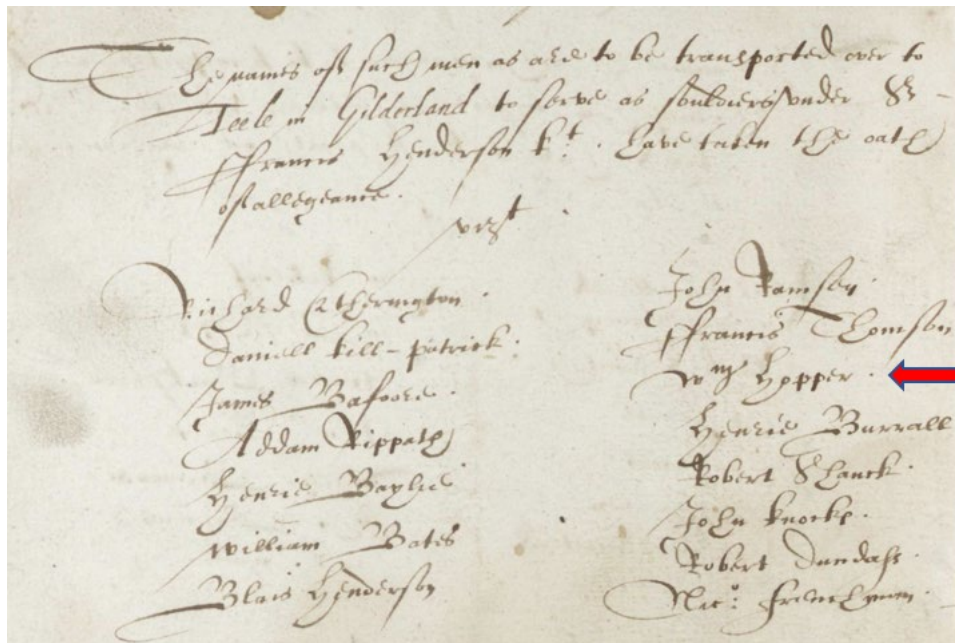 The names off such men as are to be transported over to
Teele in Gilderland to serve as souldiers under Sr
ffrancis Henderson kt. have taken the oath
off allegeance.
vrzt
Richard Etherington.
Daniell kill-patrick.
James Bafoore.
Addam Rippath
Henrie Baylie
William Bates
Blais Henderson
John Ramsey.
ffrancis Thomson
Wm Hopper.
Henrie Burrall
Robert Shanck.
John knocks.
Robert Dundass
Nico: frenchman.